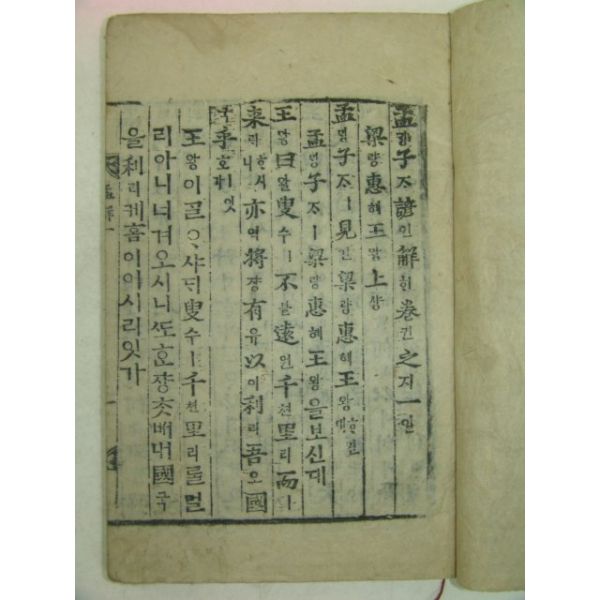 孟ᄆᆡᆼ子ᄌᆞ諺언解ᄒᆡ卷권之지一일
梁량惠혜王왕上샹
孟ᄆᆡᆼ子ᄌᆞㅣ見견梁량惠혜王왕ᄒᆞ신대
孟ᄆᆡᆼ子ᄌᆞㅣ梁량惠혜王왕을보신대
王왕曰왈叟수ㅣ不블遠원千쳔里리而이
來ᄅᆡᄒᆞ시니亦역將쟝有유以이利리吾오國
乎호ㅣ잇가
王왕이ᄀᆞᆯᄋᆞ샤ᄃᆡ叟수ㅣ千쳔里리ᄅᆞᆯ멀
리아니너겨오시니ᄯᅩᄒᆞᆫ쟝ᄎᆞᆺᄡᅥ내國국
을利리케홈이이시리잇가